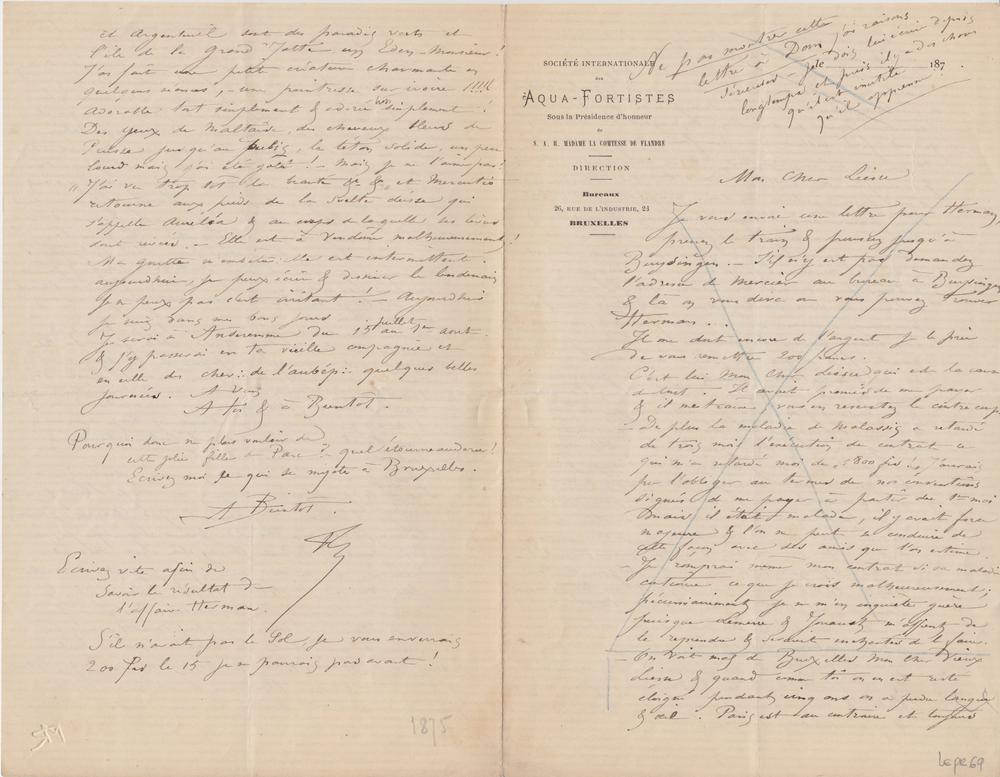 Ne pas montrer cette
lettre à Dom j'ai raisons
sérieuses - je dois lui écrire depuis
longtemps et puis il y a des choses
qu'il est inutile
qu'il apprenne
SOCIÉTÉ INTERNATIONALE
des
AQUA-FORTISTES
Sous la Présidence d'honneur
de
S. A. R. MADAME LA COMTESSE DE FLANDRE
DIRECTION
Bureaux
26, RUE DE L'INDUSTRIE, 24
BRUXELLES
le 187
Mon Cher Liesse
Je vous envoie une lettre pour Herman,
prenez le train & poussez jusqu'à
Buysingen. — S'il n'y est pas demandez
l'adresse de Mercier au bureau à Buysingen
& là on vous dira où vous pouvez trouver
Herman..
Il me doit encore de l'argent je le prie
de vous remettre 200 francs.
C'est lui mon cher Liesse qui est la cause
de tout. Il avait promis de me payer
& il me traîne vous en ressentez le contre coup
De plus la maladie de Malassis a retardé
de trois mois l'exécution du contrat ce
qui m'a retardé moi de 1800 frs. J'aurais
pu l'obliger au termes de nos conventions
signées de me payer à partir du 1er mai
mais il était malade, il y avait force
majeure & l'on ne peut se conduire de
cette façon avec des amis que l'on estime
— Je romprai même mon contrat si sa maladie
continue ce que je crois malheureusement.
pécuniairement je ne m'en inquiète guère
puisque Lemerre & Jouaust m'offrent de
le reprendre & seront enchantés de le faire.
— On voit mal de Bruxelles mon cher vieux
Liesse & quand comme toi on en est resté
éloigné pendant cinq ans on a perdu langue
& œil. Paris est au contraire et toujours
et Argenteuil sont des paradis verts et
l'île de la Grand Jatte un Eden-Monsieur!
J'ai fait une petite créature charmante en
quelques séances, — une peintresse sur ivoire !!!!!
Adorable tout simplement & adorée simplement!
Des yeux de Maltaise, des cheveux bleus de
jusqu'au pubis, le teton solide, un peu
lourd mais j'ai été gâté! — Mais je ne l'aime pas!
"J'ai vu trop tôt la beauté &. &." et Mercutio
retourne aux pieds de la svelte déesse qui
s'appelle Aurélia & au corps de laquelle ses lèvres
sont rivées. — Elle est à Vendôme, malheureusement!
Ma goutte m'embête elle est intermittente.
aujourd'hui, je peux écrire & dessiner le lendemain
je ne peux pas c'est irritant! — Aujourd'hui
je suis dans mes bons jours
Je serai à Anseremme du 15 juillet au 1er août
& j'y passerai en ta vieille compagnie et
en celle des chev: de l'aubép: quelques belles
journées. A vous
A toi & à Bientôt.
Pourquoi donc ne plus vouloir de
cette jolie fille du Parc? quel étourneau !
Ecrivez moi ce qui se mijote à Bruxelles.
A Bientôt.
Ecrivez vite afin de
savoir le résultat de
l'affaire Herman.
S'il n'avait pas le Sol, je vous enverrais
200 frs le 15 je ne pourrais pas avant!
1875
LePe69